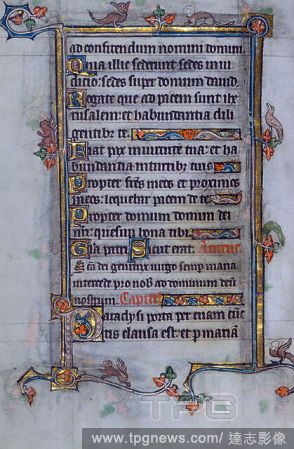 ad confitendum nomini domini
Quia illic sederunt sedes in iudi
ditio: sedes super domum dauid.
Rogate que ad pacem sunt ihe
rusalem: et habundantia dili
gentibus te.
Fiat pax in uirtute tua: et ha
bundantia in turribus tuis
Propter fratres meos et proximos
meos: loquebar pacem de te
Propter domum domini dei
nri: quesiui bona tibi
Gla patri Sicut erat.
Sca dei genitrix uirgo semper maria
intercede pro nobis ad dominum deum
nostrum.
porta per
clausa est: et per mariam
TPG
www.tpgnews.com/達志影像